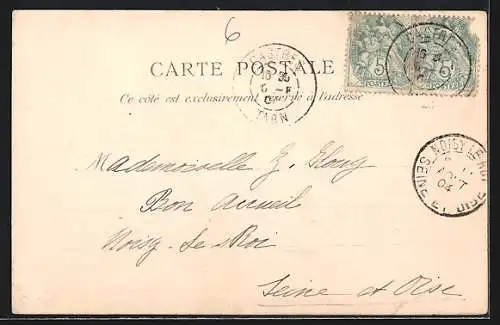 6
CARTE POSTALE
Ce côté est exclusivement réservé à l'adresse
CASTRES
TARN
CASTRES
5 5
POSTES POSTES
NOISY-LE-ROI
AOUT
04
SEINE ET OISE
Mademoiselle
Bon Accueil
Noisy-le-Roi
Seine et Oise